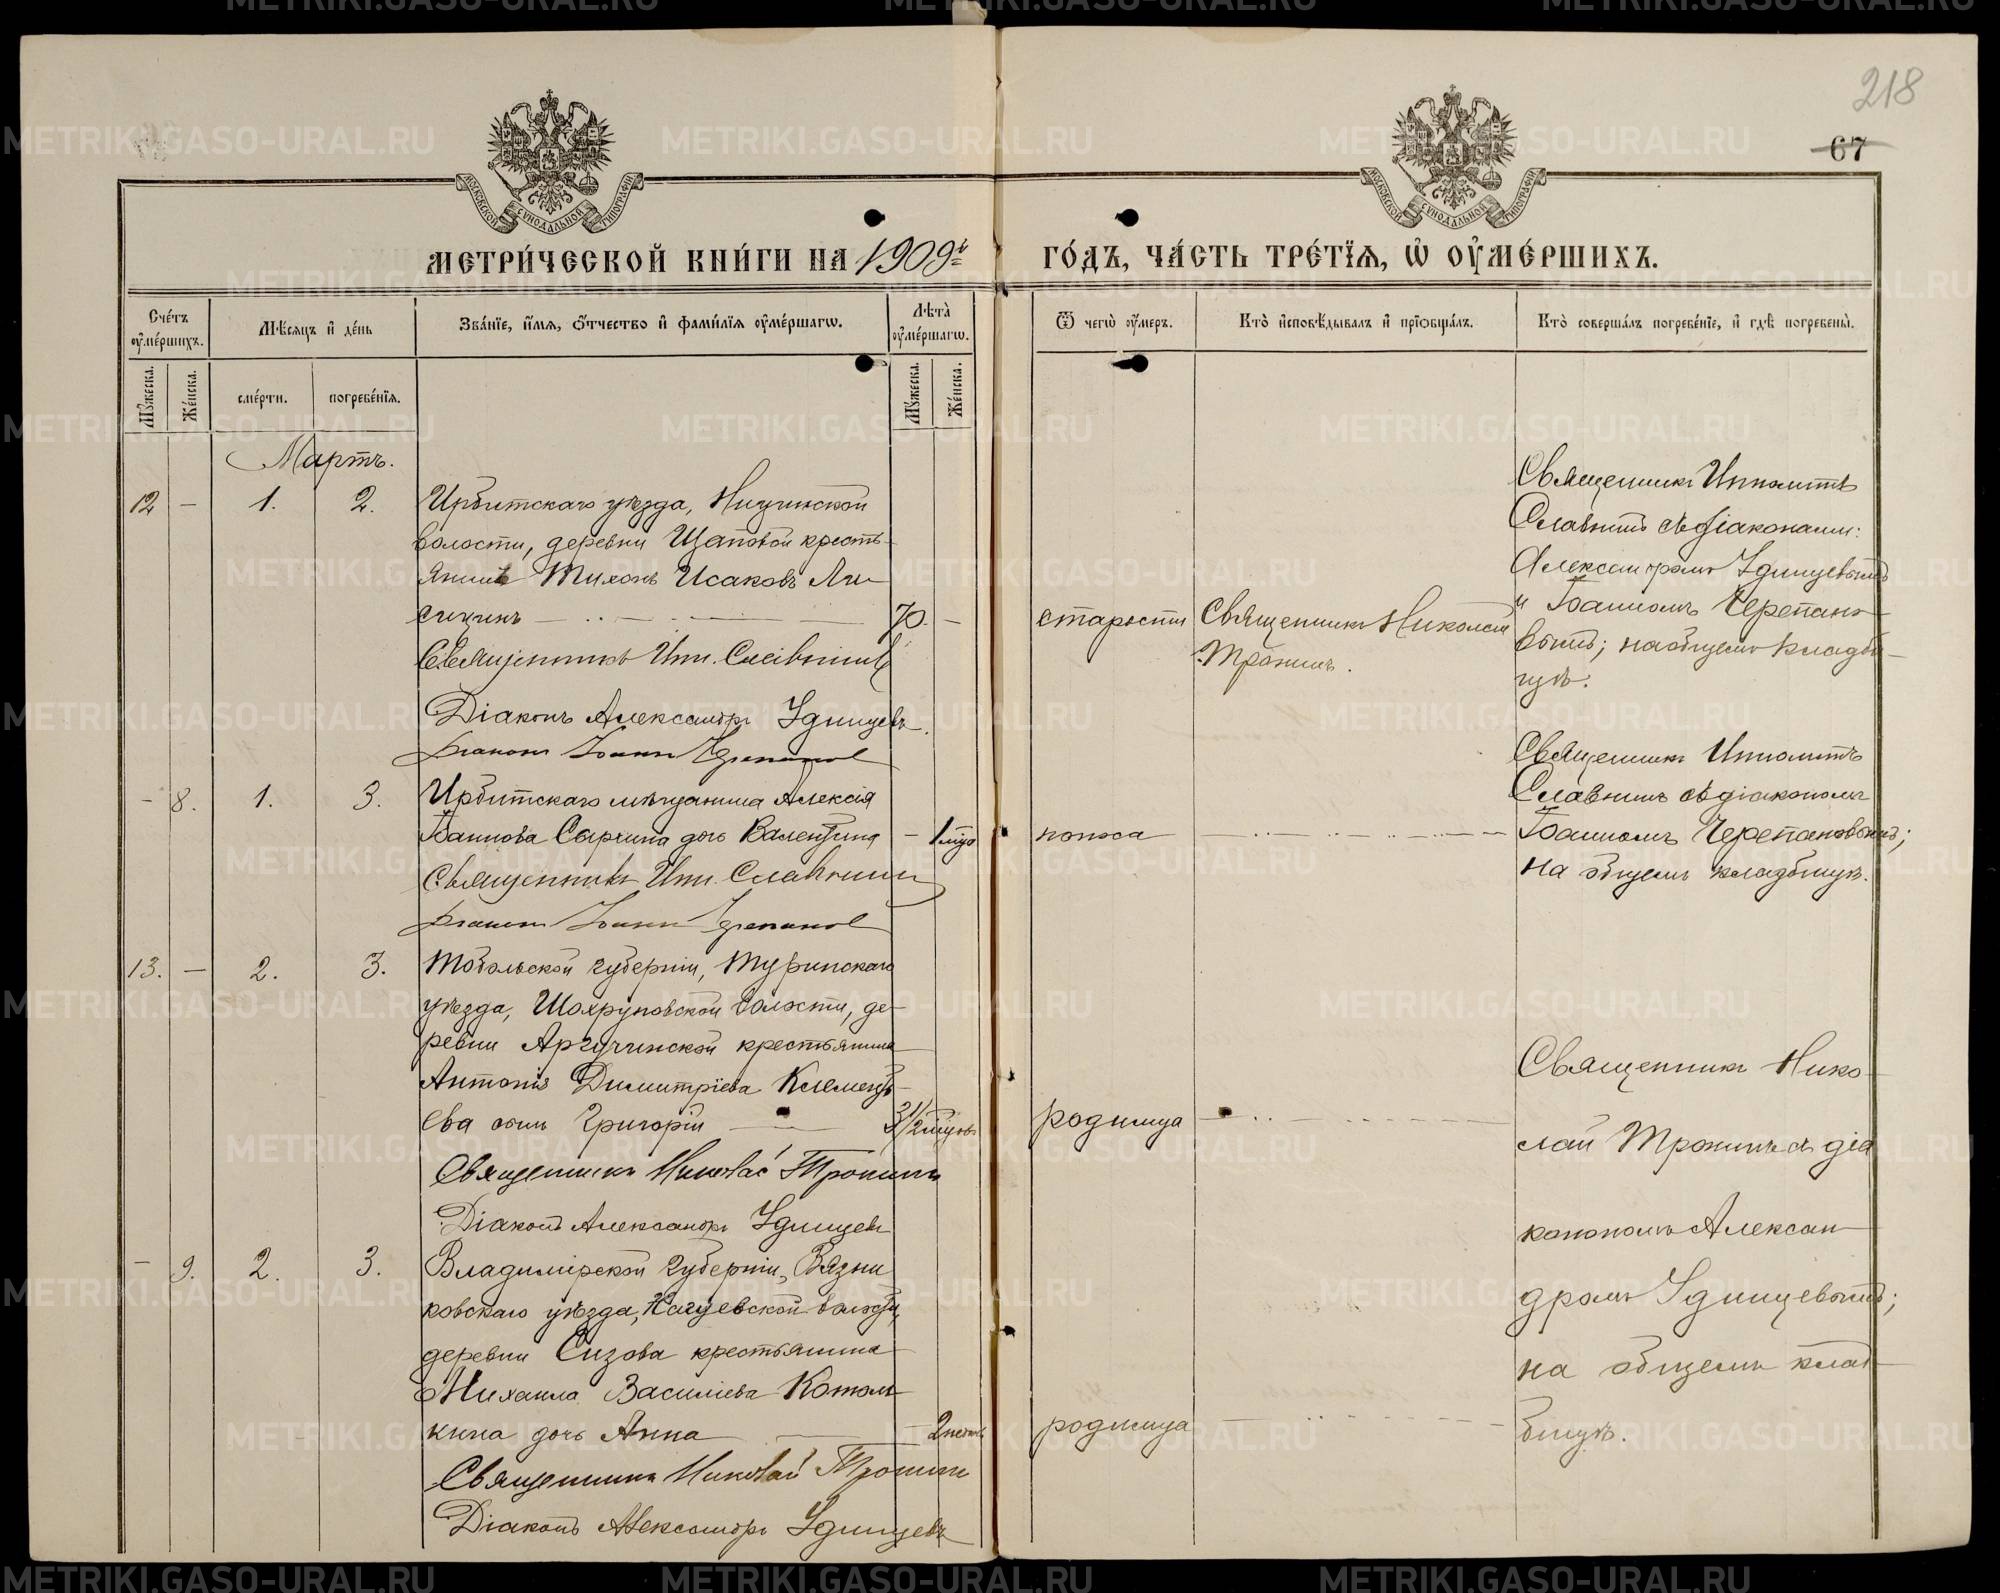 218
67
МОСКОВСКОЙ СѴНОДАЛЬНОЙ ТИПОГРАФІИ
МОСКОВСКОЙ СѴНОДАЛЬНОЙ ТИПОГРАФІИ
МЕТРИ́ЧЕСКОЙ КНИ́ГИ НА 1909й
ГО́ДЪ, ЧА́СТЬ ТРЕ́ТЇѦ, Ѡ҆ ОУ҆МЕ́РШИХЪ.
Сче́тъ оу҆ме́ршихъ.
Мѣ́сѧцъ и҆ де́нь
Зва́нїе, и҆́мѧ, ѻ҆́тчество и҆ фами́лїѧ оу҆ме́ршагѡ.
Лѣ́та̀ оу҆ме́ршагѡ.
Ѿ чегѡ̀ оу҆́меръ.
Кто̀ и҆сповѣ́дывалъ и҆ прїѡбща́лъ.
Кто̀ соверша́лъ погребе́нїе, и҆ гдѣ̀ погребены̀.
Мꙋ́жеска.
Же́нска.
сме́рти.
погребе́нїѧ.
Мꙋ́жеска.
Же́нска.
Мартъ.
12 — 1. 2.
Ирбитскаго уѣзда, Ницинской
волости, деревни Щаповой кресть-
янинъ Тихонъ Исаковъ Ли-
сицинъ 70. —
Священникъ Ипп. Славнинъ
Діаконъ Александръ Удинцевъ.
Діаконъ Іоаннъ Черепановъ
старости
Священникъ Николай
Тронинъ.
Священникъ Ипполитъ
Славнинъ съ діаконами:
Александромъ Удинцевымъ
и Іоанномъ Черепано-
вымъ; на общемъ кладби-
щѣ.
— 8. 1. 3.
Ирбитскаго мѣщанина Алексія
Іоаннова Сыркина дочь Валентина — 1 мѣс
Священникъ Ипп. Славнинъ
Діаконъ Іоаннъ Черепановъ
поноса
Священникъ Ипполитъ
Славнинъ съ діакономъ
Іоанномъ Черепановымъ;
на общемъ кладбищѣ.
13. — 2. 3.
Тобольской губерніи, Туринскаго
уѣзда, Шохруповской волости, де-
ревни крестьянина
Антонія Димитріева Клементь-
ева сынъ Григорій 3 1/2
Священникъ Николай Тронинъ
Діаконъ Александръ Удинцевъ
родимца
Священникъ Нико-
лай Тронинъ съ діа
кономъ Алексан-
дромъ Удинцевымъ;
на общемъ клад-
бищѣ.
— 9. 2. 3.
Владимірской губерніи, Вязни
ковскаго уѣзда, волости,
деревни Сизова крестьянина
Михаила Василіева Котом-
кина дочь Анна — 2
Священникъ Николай Тронинъ
Діаконъ Александръ Удинцевъ
родимца
METRIKI.GASO-URAL.RU